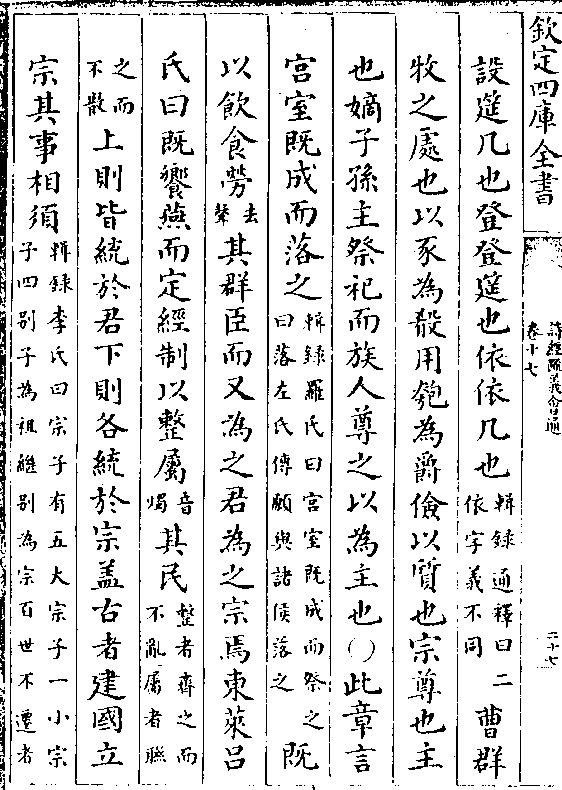 欽定四庫全書
詩經疏義會通
卷十七
二十七
設筵几也登登筵也依依几也輯錄通釋曰二依字義不同曹群
牧之處也以豕為殽用匏為爵儉以質也宗尊也主
也嫡子孫主祭祀而族人尊之以為主也○此章言
宫室既成而落之輯錄羅氏曰宫室既成而祭之曰落左氏傳願與諸侯落之既
以飲食勞去聲其群臣而又為之君為之宗焉東萊吕
氏曰既饗燕而定經制以整屬音燭其民整者齊之而不亂屬者聯
之而不散上則皆統於君下則各統於宗盖古者建國立
宗其事相須輯錄李氏曰宗子有五大宗子一小宗子四别子為祖繼别為宗百世不遷者